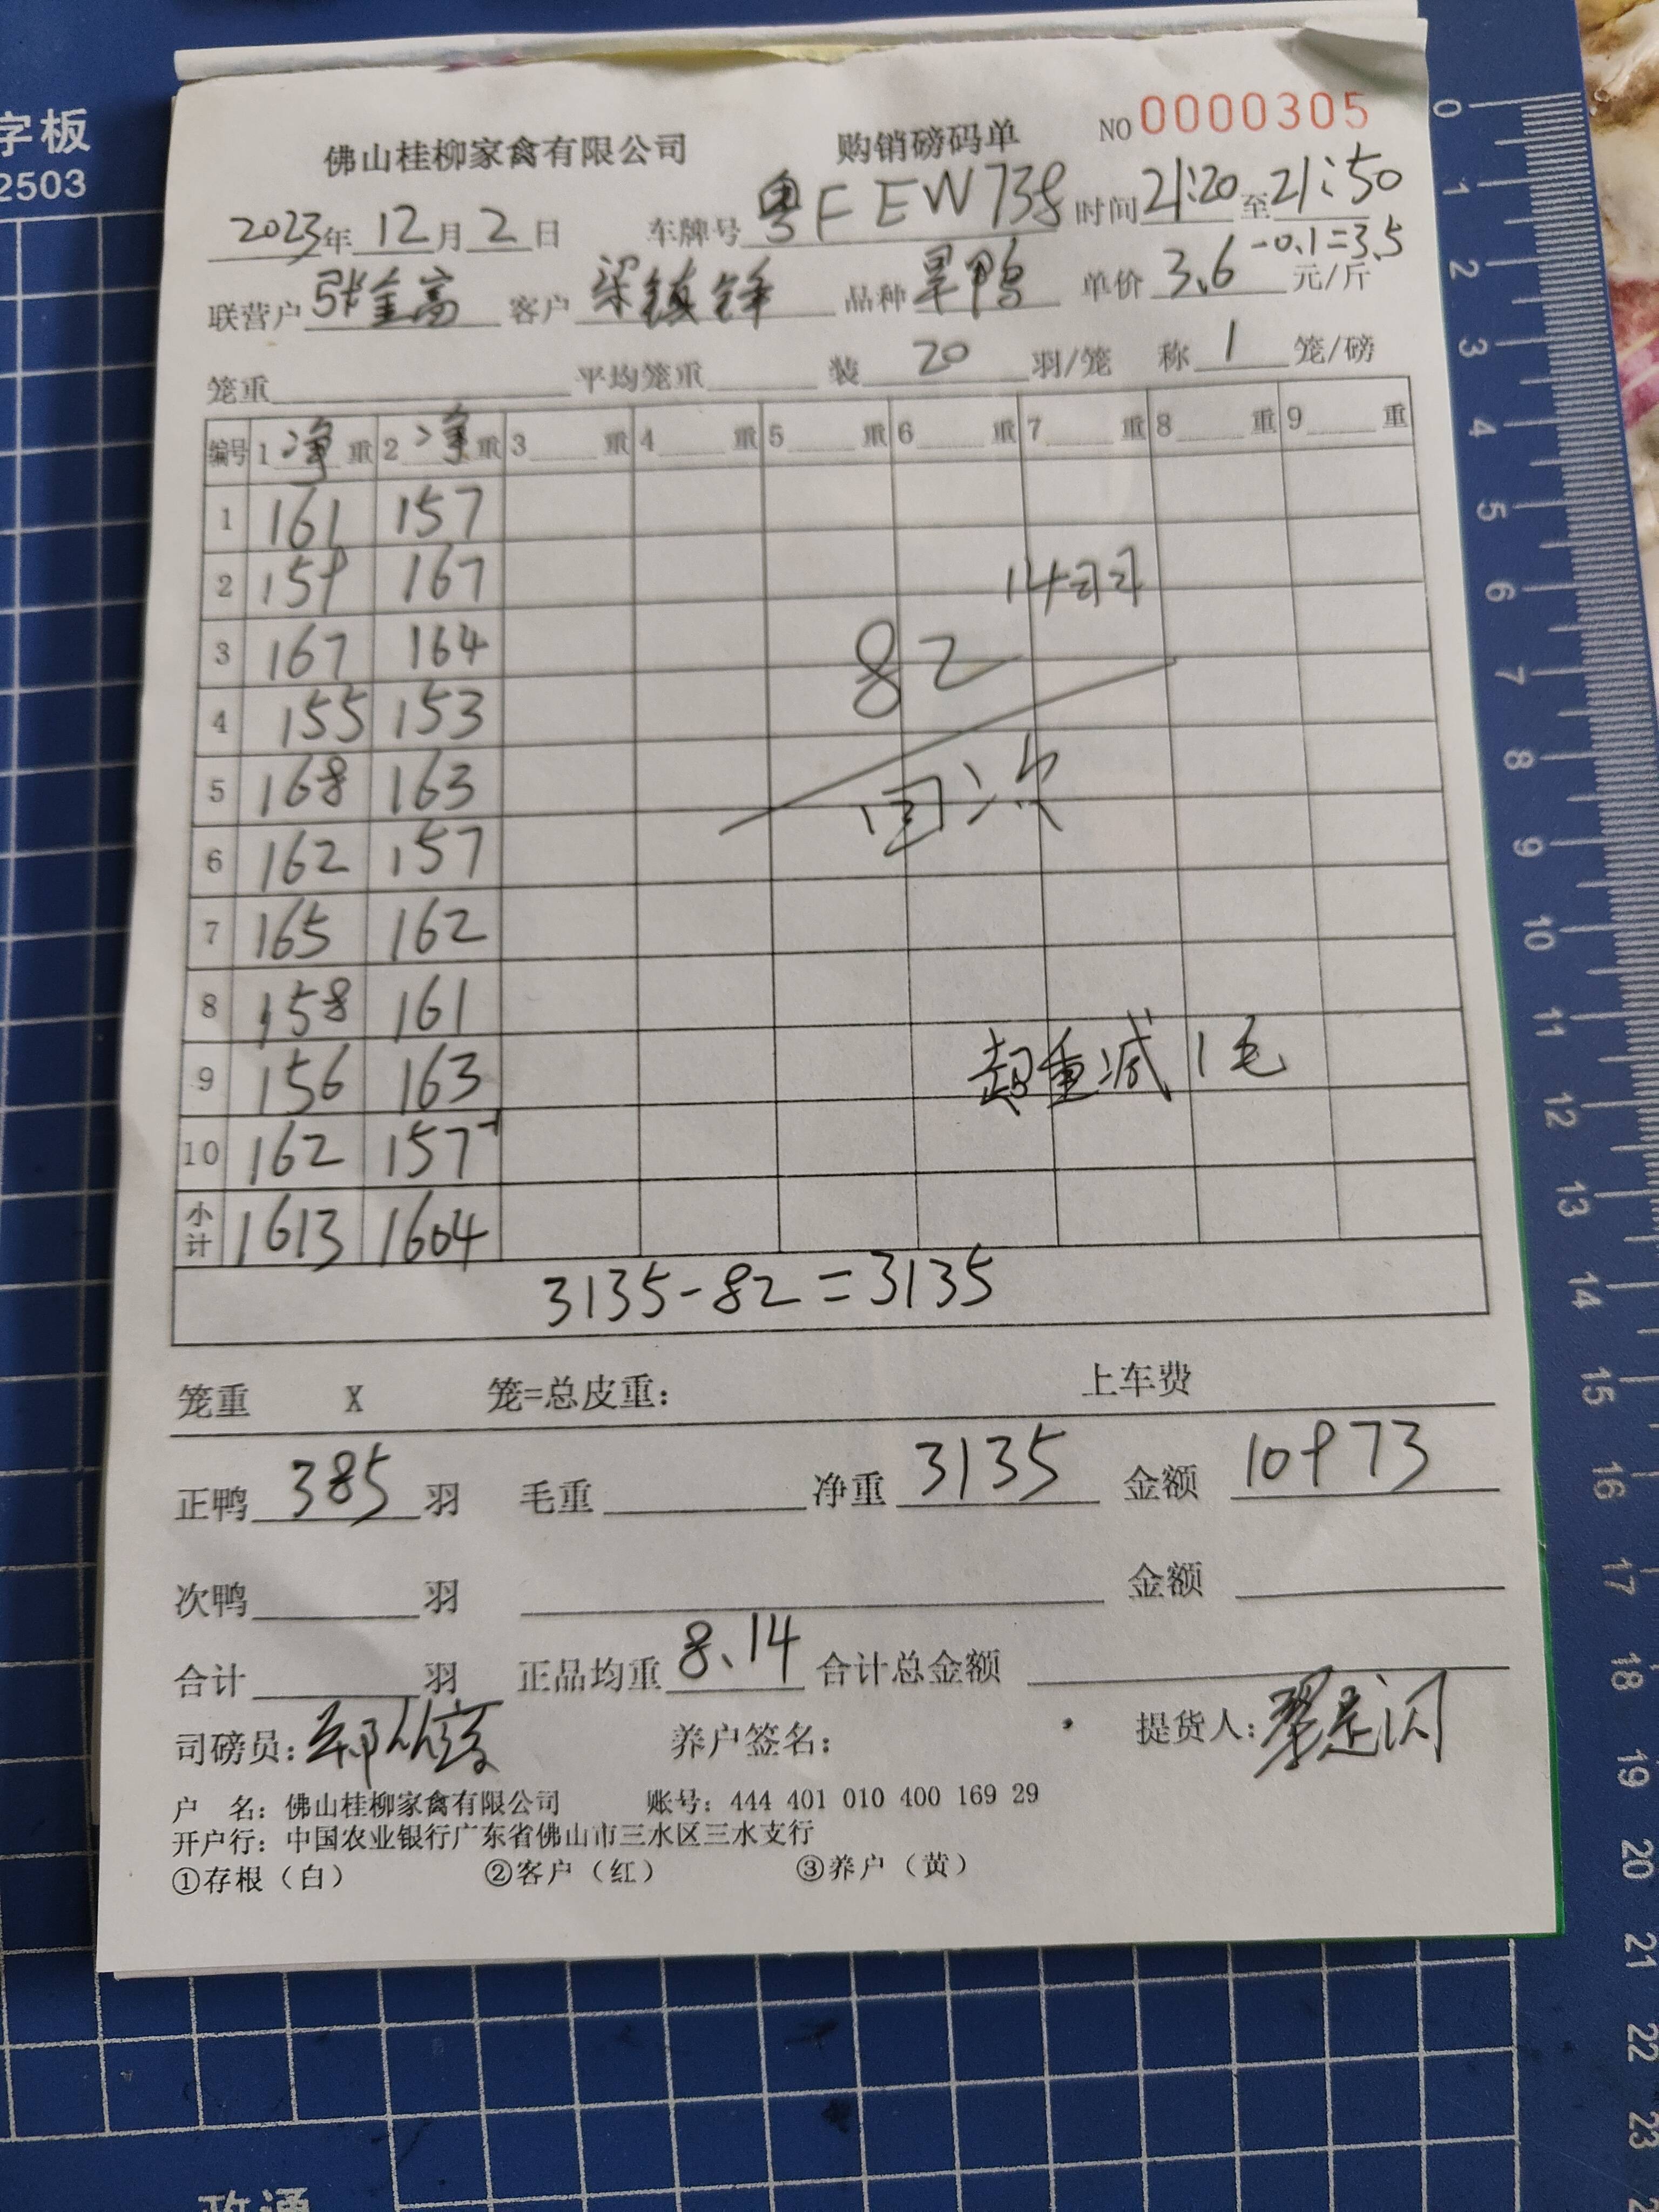 字板
2503
佛山桂柳家禽有限公司 购销磅码单 NO 0000305
2023年 12月 2日 车牌号 粤FEW738 时间 21:20 至 21:50
-0.1=3.5
联营户 张金高 客户 梁镇锋 品种 旱鸭 单价 3.6 元/斤
笼重 平均笼重 装 20 羽/笼 称 1 笼/磅
编号 1 净 重 2 净 重 3 重 4 重 5 重 6 重 7 重 8 重 9 重
1 161 157
2 159 167
14羽
3 167 164
82
4 155 153
5 168 163
回次
6 162 157
7 165 162
8 158 161
9 156 163
超重减1毛
10 162 157
小计 1613 1604
3135-82=3135
笼重 X 笼=总皮重: 上车费
正鸭 385 羽 毛重 净重 3135 金额 10973
次鸭 羽 金额
合计 羽 正品均重 8.14 合计总金额
司磅员: 养户签名: 提货人:
户 名: 佛山桂柳家禽有限公司 账号: 444 401 010 400 169 29
开户行: 中国农业银行广东省佛山市三水区三水支行
①存根（白） ②客户（红） ③养户（黄）
0
1
2
3
4
5
6
7
8
9
10
11
12
13
14
15
16
17
18
19
20
21
22
23